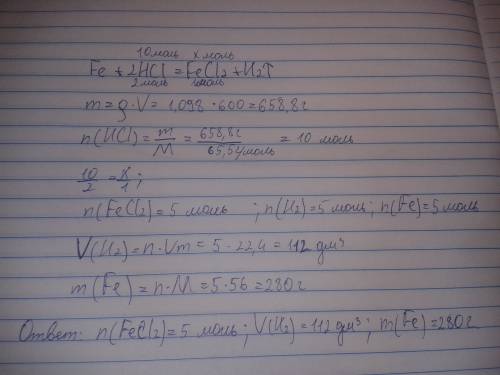 10 моль x моль
Fe + 2HCl = FeCl2 + H2↑
2 моль 1 моль
m = ρ · V = 1,098 · 600 = 658,8г
n(HCl) = m/M = 658,8г/65,54моль = 10 моль
10/2 = x/1;
n(FeCl2) = 5 моль ; n(H2) = 5 моль; n(Fe) = 5 моль
V(H2) = n · Vm = 5 · 22,4 = 112 дм³
m(Fe) = n · M = 5 · 56 = 280 г
Ответ: n(FeCl2) = 5 моль; V(H2) = 112 дм³; m(Fe) = 280г